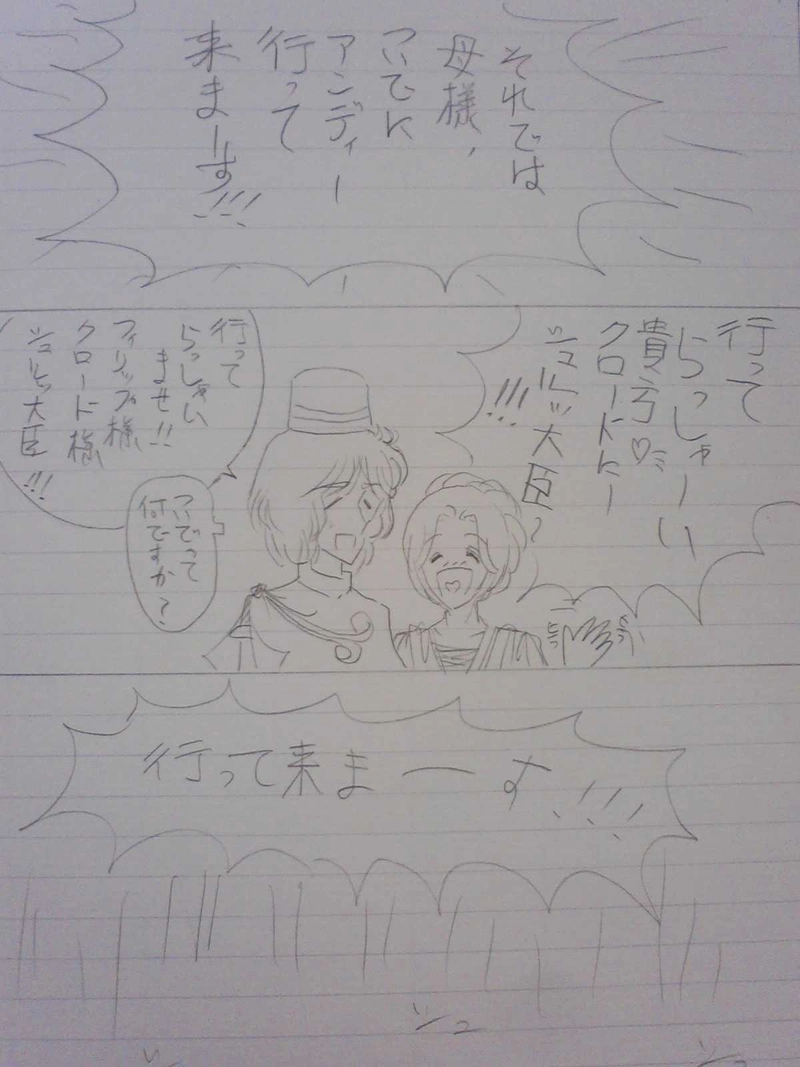 それでは
母様、
ついでに
アンディー
行って
来まーす!!!
行って
らっしゃーい
貴方♡
クロードにー
シュルツ大臣~
!!!
行って
らっしゃい
ませ!!
フィリップ様
クロード様
シュルツ大臣!!!
ついでって
何ですか?
行って来まーす!!!
シュ
シュ